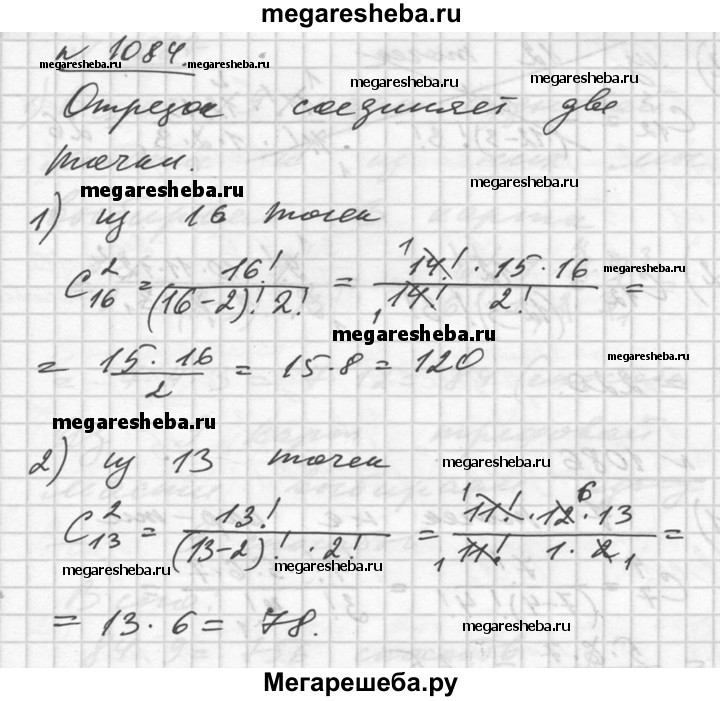 megaresheba.ru
№ 1084.
megaresheba.ru megaresheba.ru
megaresheba.ru megaresheba.ru
Отрезок соединяет две
точки.
megaresheba.ru
megaresheba.ru
1) из 16 точек
C₁₆² = 16! / (16-2)! 2! = 14! · 15 · 16 / 14! 2! =
megaresheba.ru
megaresheba.ru
megaresheba.ru
= 15 · 16 / 2 = 15·8 = 120
megaresheba.ru
megaresheba.ru
2) из 13 точек
megaresheba.ru
C₁₃² = 13! / (13-2)! · 2! = 11! · 12 · 13 / 11! 1 · 2 =
megaresheba.ru
megaresheba.ru
= 13 · 6 = 78.
megaresheba.ru
Мегарешеба.ру